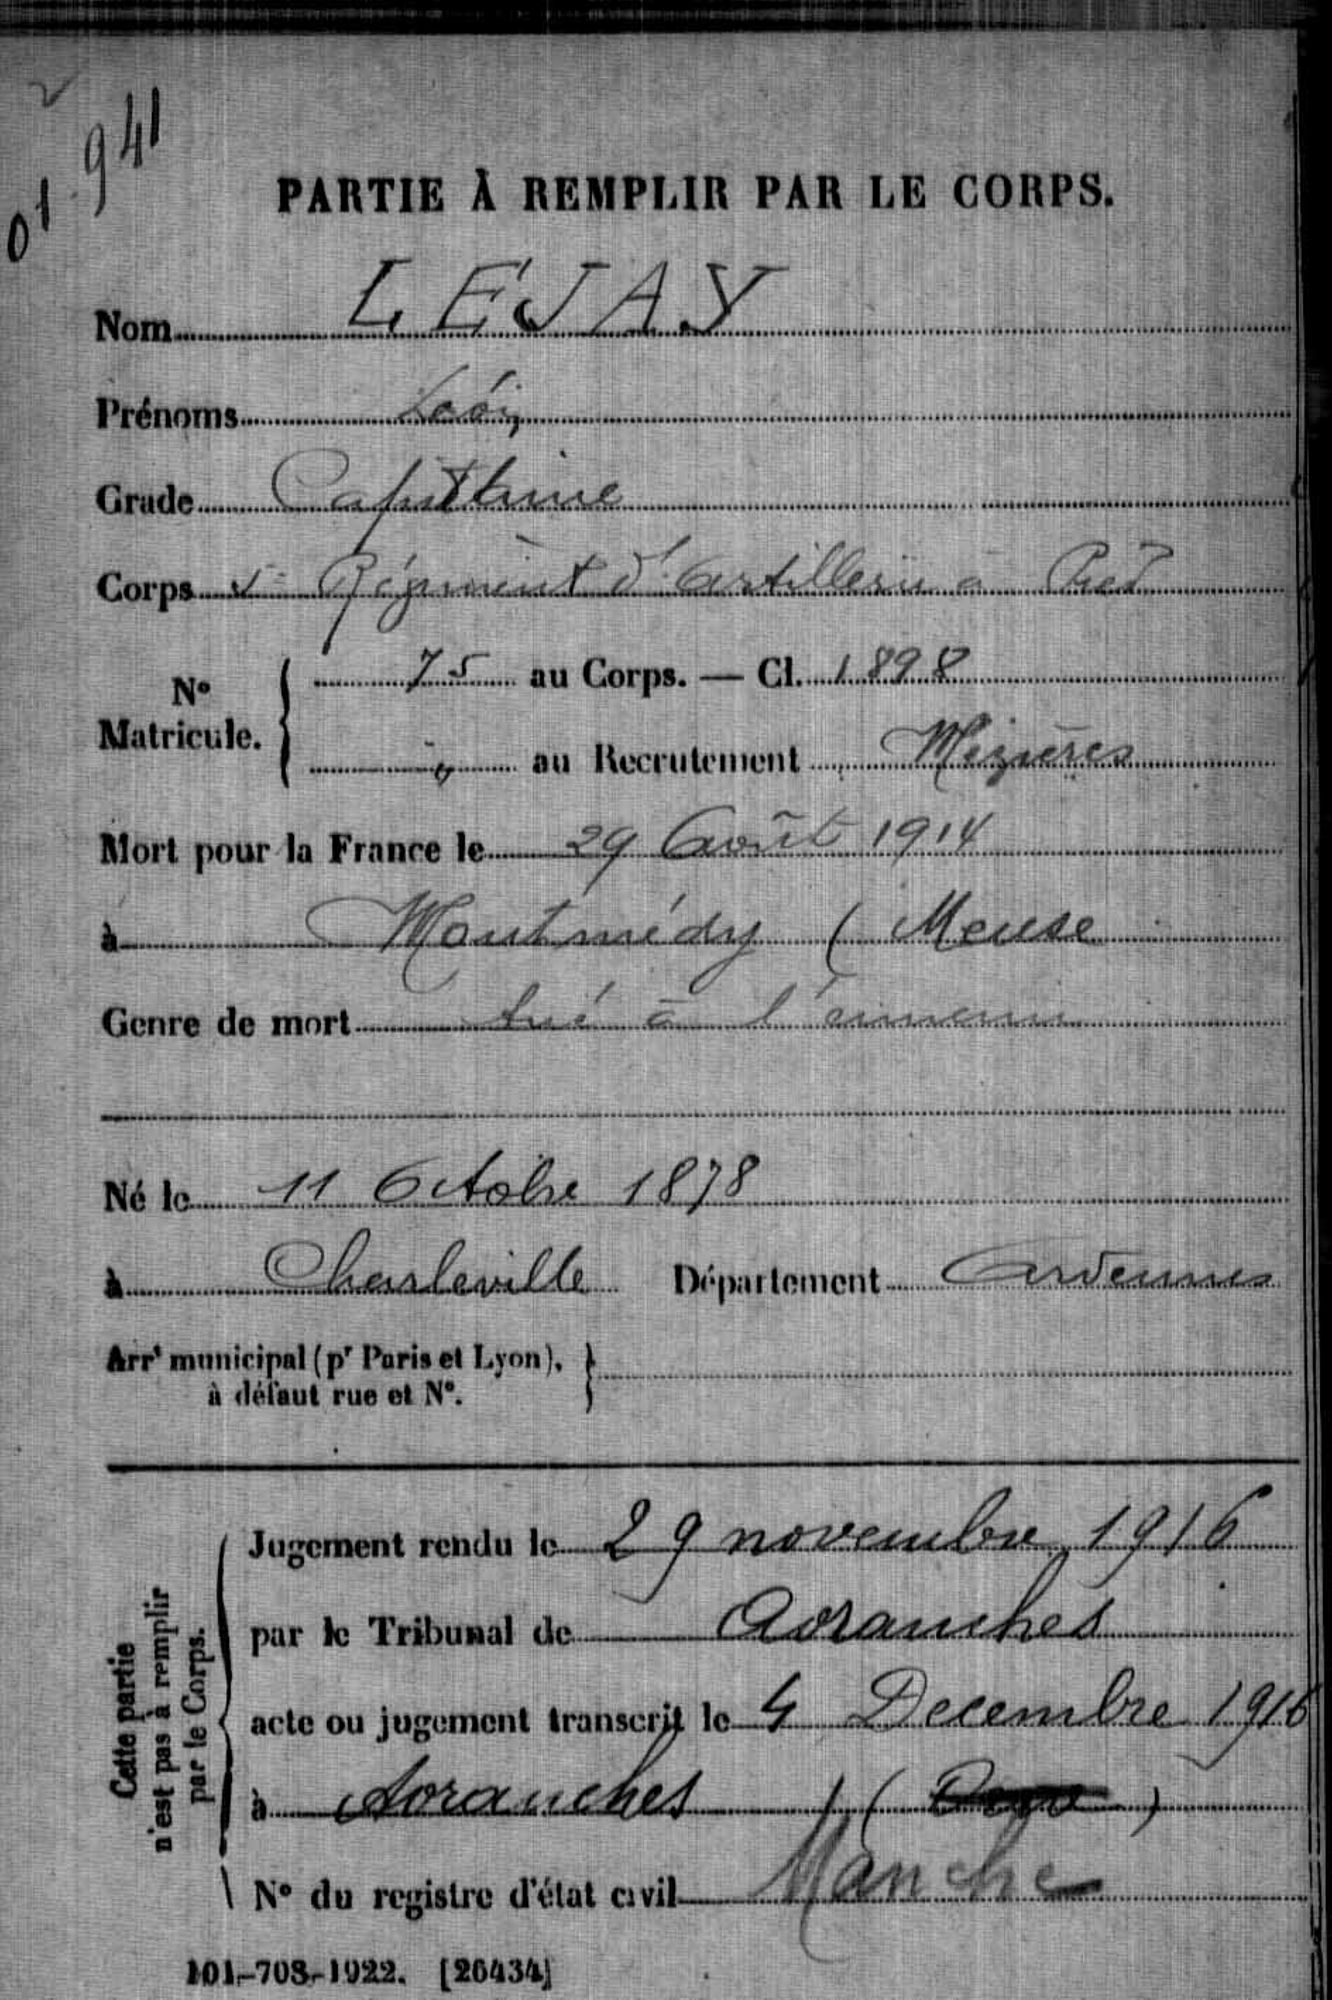 01.941
PARTIE À REMPLIR PAR LE CORPS.
Nom LEJAY
Prénoms Léon
Grade Capitaine
Corps 5e Régiment d'Artillerie à Pied
No Matricule. { 75 au Corps. — Cl. 1898
" au Recrutement Mézières
Mort pour la France le 29 Août 1914
à Montmédy (Meuse
Genre de mort tué à l'ennemi
Né le 11 Octobre 1878
à Charleville Département Ardennes
Arrt municipal (pr Paris et Lyon), }
à défaut rue et No.
Cette partie
n'est pas à remplir
par le Corps.
Jugement rendu le 29 novembre 1916
par le Tribunal de Avranches
acte ou jugement transcrit le 4 Decembre 1916
à Avranches ( )
Manche
No du registre d'état civil
101-708-1922. [26434]